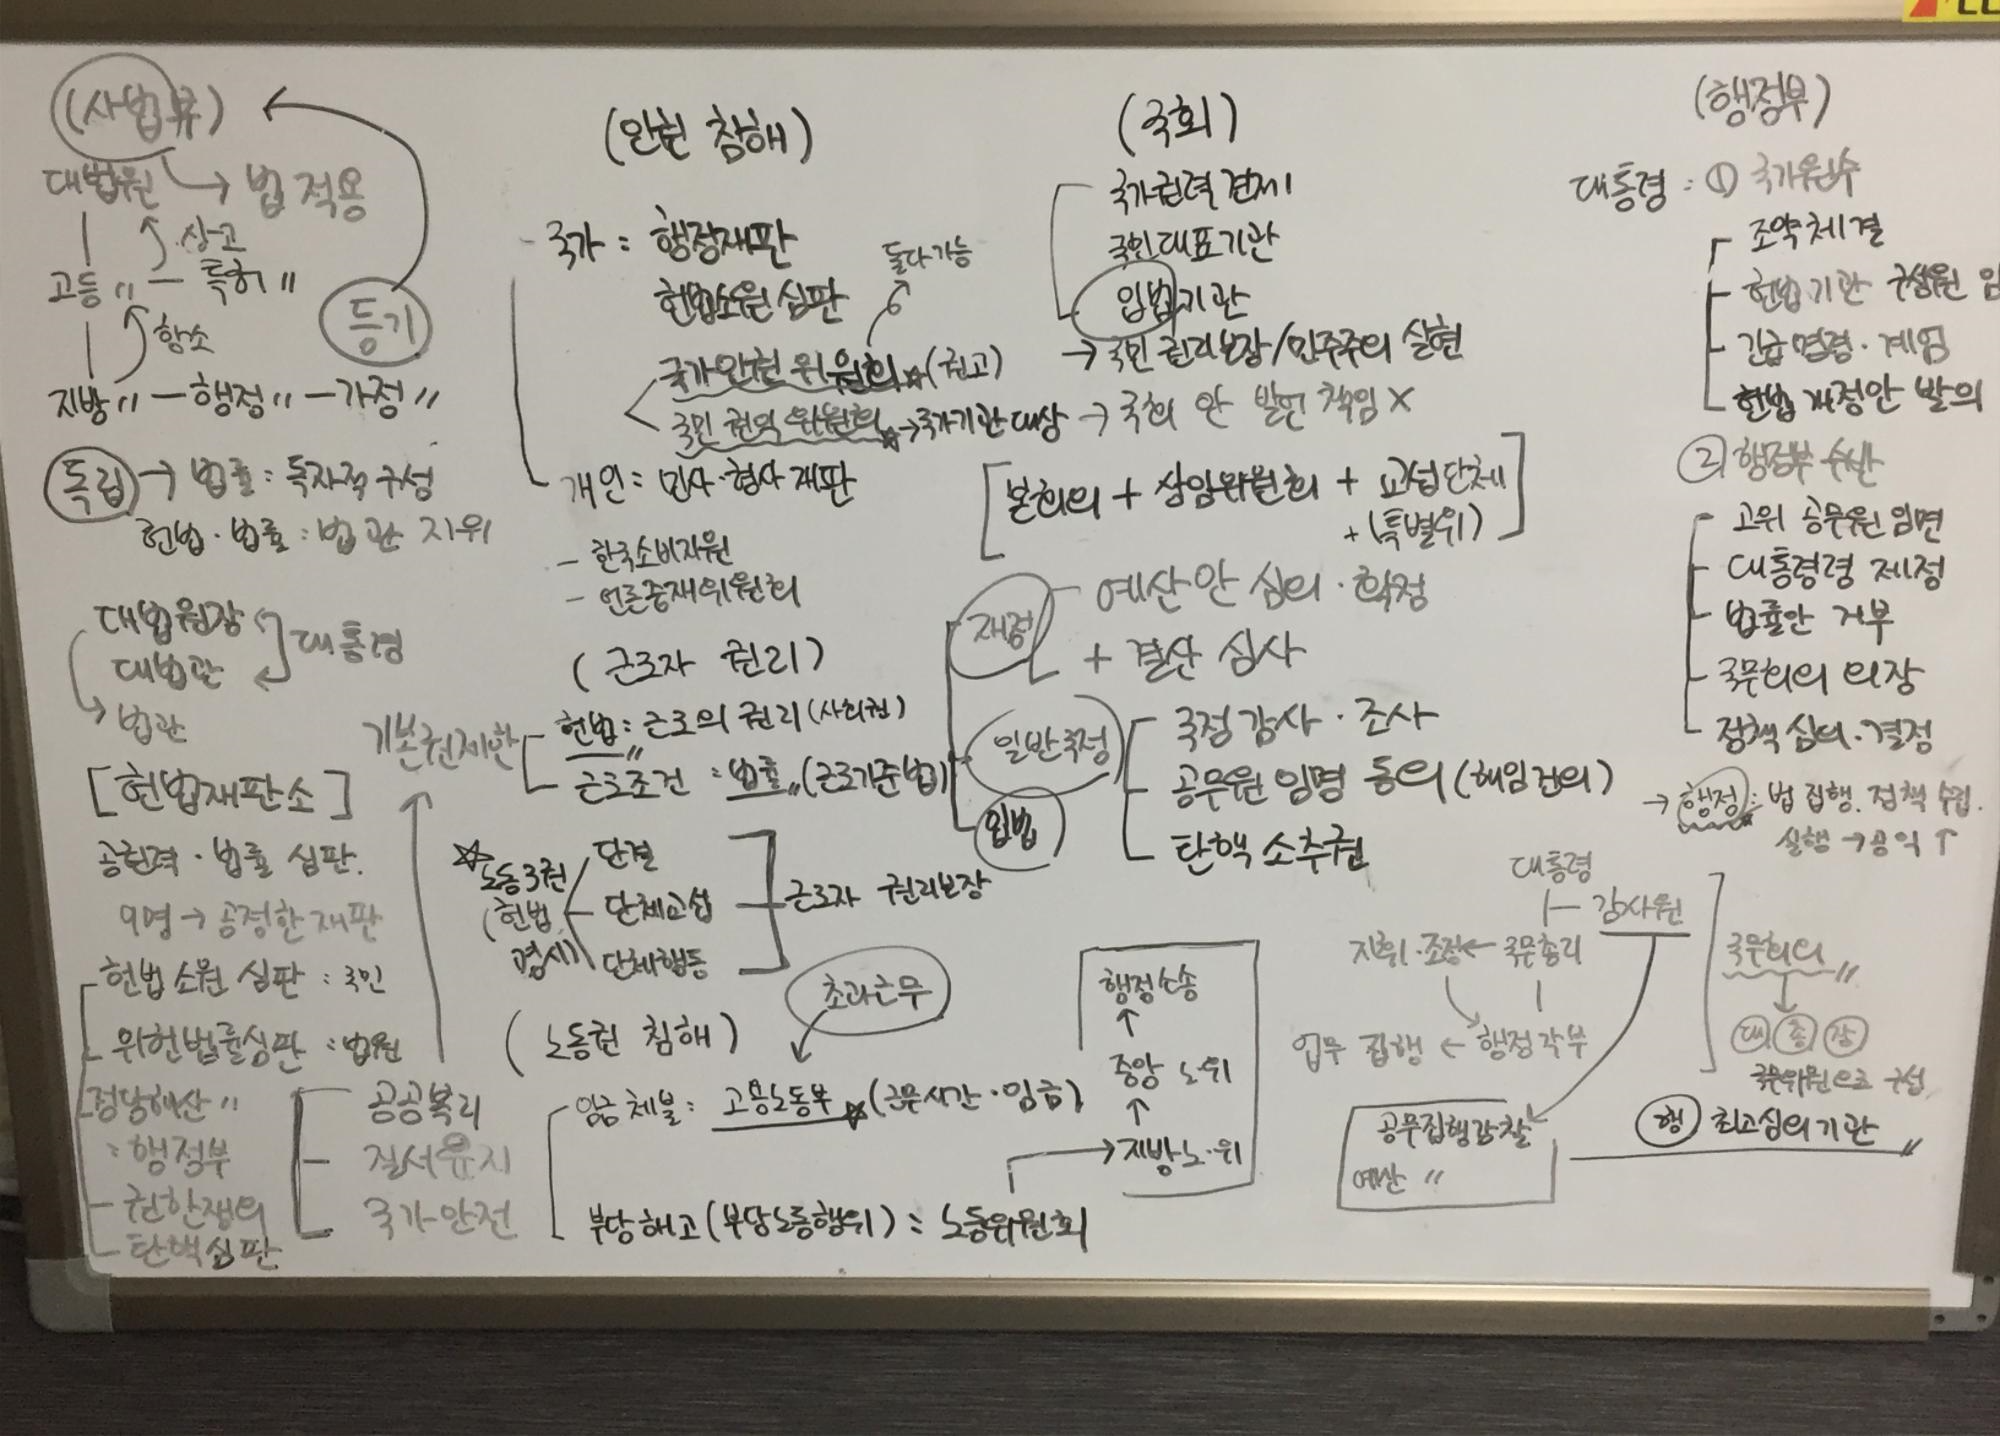 (사법류)
대법원 → 법 적용
상고
고등〃 - 특허〃
등기
항소
지방〃 - 행정〃 - 가정〃
독립 → 법률 : 독자적 구성
헌법 · 법률 : 법관 지위
대법원장
대법관
대통령
법관
[헌법재판소]
공권력 · 법률 심판.
9명 → 공정한 재판
헌법 소원 심판 : 국민
위헌법률심판 : 법원
정당해산〃
: 행정부
권한쟁의
탄핵심판
기본권제한
공공복리
질서유지
국가안전
(인권 침해)
국가 : 행정재판
헌법소원 심판
둘다가능
국가인권위원회 (권고)
국민권익위원회 → 국가기관 대상
개인 : 민사·형사 재판
- 한국소비자원
- 언론중재위원회
(근로자 권리)
헌법 : 근로의 권리 (사회권)
근로조건 : 법률〃 (근로기준법)
☆노동3권
(헌법
명시)
단결
단체교섭
단체행동
근로자 권리보장
초과근무
(노동권 침해)
임금 체불 : 고용노동부☆ (근무시간·임금)
부당해고 (부당노동행위) : 노동위원회
행정소송
↑
중앙 노·위
↑
지방노·위
(국회)
국가권력 견제
국민대표기관
입법기관
→ 국민 권리보장/민주주의 실현
→ 국회 안 발언 책임 X
[본회의 + 상임위원회 + 교섭단체
+ (특별위)]
재정
예산안 심의·확정
+ 결산 심사
일반국정
국정감사 · 조사
공무원 임명 동의 (해임건의)
탄핵 소추권
입법
(행정부)
대통령 : ① 국가원수
조약체결
헌법기관 구성원 임
긴급명령·계엄
헌법 개정안 발의
② 행정부 수반
고위 공무원 임면
대통령령 제정
법률안 거부
국무회의 의장
정책 심의·결정
→ 행정 : 법 집행. 정책 수립.
실행 → 공익 ↑
대통령
감사원
지휘·조정 ← 국무총리
업무 집행 ← 행정각부
국무회의〃
대 총 장
국무위원으로 구성
행 최고심의기관
공무집행감찰
예산 〃